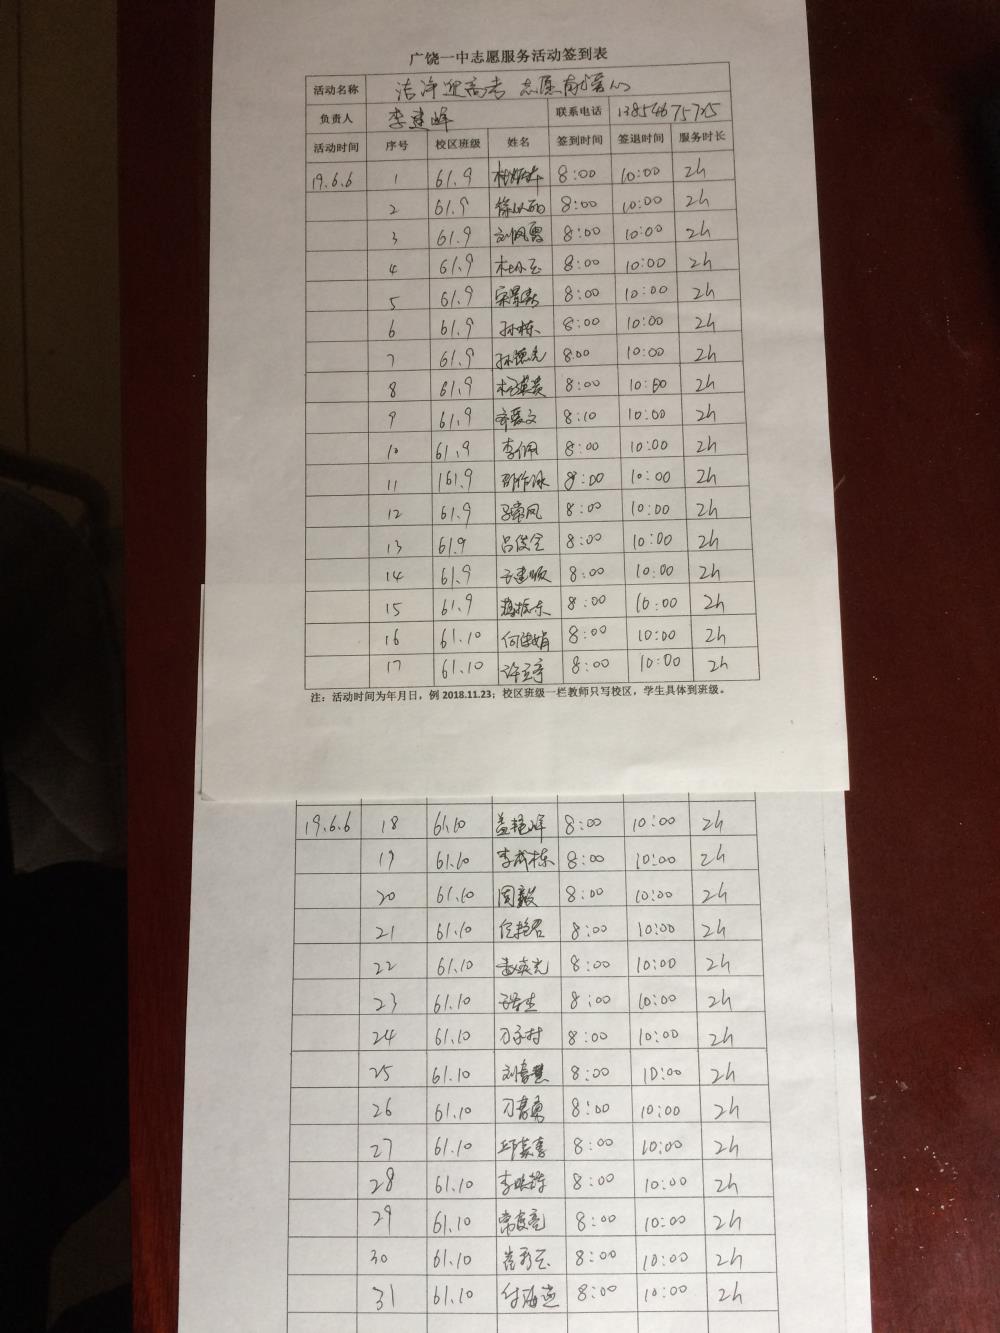 广饶一中志愿服务活动签到表
活动名称 洁净迎高考 志愿有爱心
负责人 李建峰 联系电话 13854675725
活动时间 序号 校区班级 姓名 签到时间 签退时间 服务时长
19.6.6 1 61.9 8:00 10:00 2h
2 61.9 8:00 10:00 2h
3 61.9 8:00 10:00 2h
4 61.9 8:00 10:00 2h
5 61.9 8:00 10:00 2h
6 61.9 孙栋 8:00 10:00 2h
7 61.9 孙德光 8:00 10:00 2h
8 61.9 8:00 10:00 2h
9 61.9 齐爱文 8:10 10:00 2h
10 61.9 李佩 8:00 10:00 2h
11 161.9 邵作冰 8:00 10:00 2h
12 61.9 8:00 10:00 2h
13 61.9 吕俊全 8:00 10:00 2h
14 61.9 王建顺 8:00 10:00 2h
15 61.9 8:00 10:00 2h
16 61.10 8:00 10:00 2h
17 61.10 许立亭 8:00 10:00 2h
注：活动时间为年月日，例 2018.11.23；校区班级一栏教师只写校区，学生具体到班级。
19.6.6 18 61.10 盖艳峰 8:00 10:00 2h
19 61.10 李成栋 8:00 10:00 2h
20 61.10 周毅 8:00 10:00 2h
21 61.10 8:00 10:00 2h
22 61.10 8:00 10:00 2h
23 61.10 8:00 10:00 2h
24 61.10 刁子村 8:00 10:00 2h
25 61.10 8:00 10:00 2h
26 61.10 8:00 10:00 2h
27 61.10 8:00 10:00 2h
28 61.10 8:00 10:00 2h
29 61.10 常俊亮 8:00 10:00 2h
30 61.10 8:00 10:00 2h
31 61.10 付海燕 8:00 10:00 2h